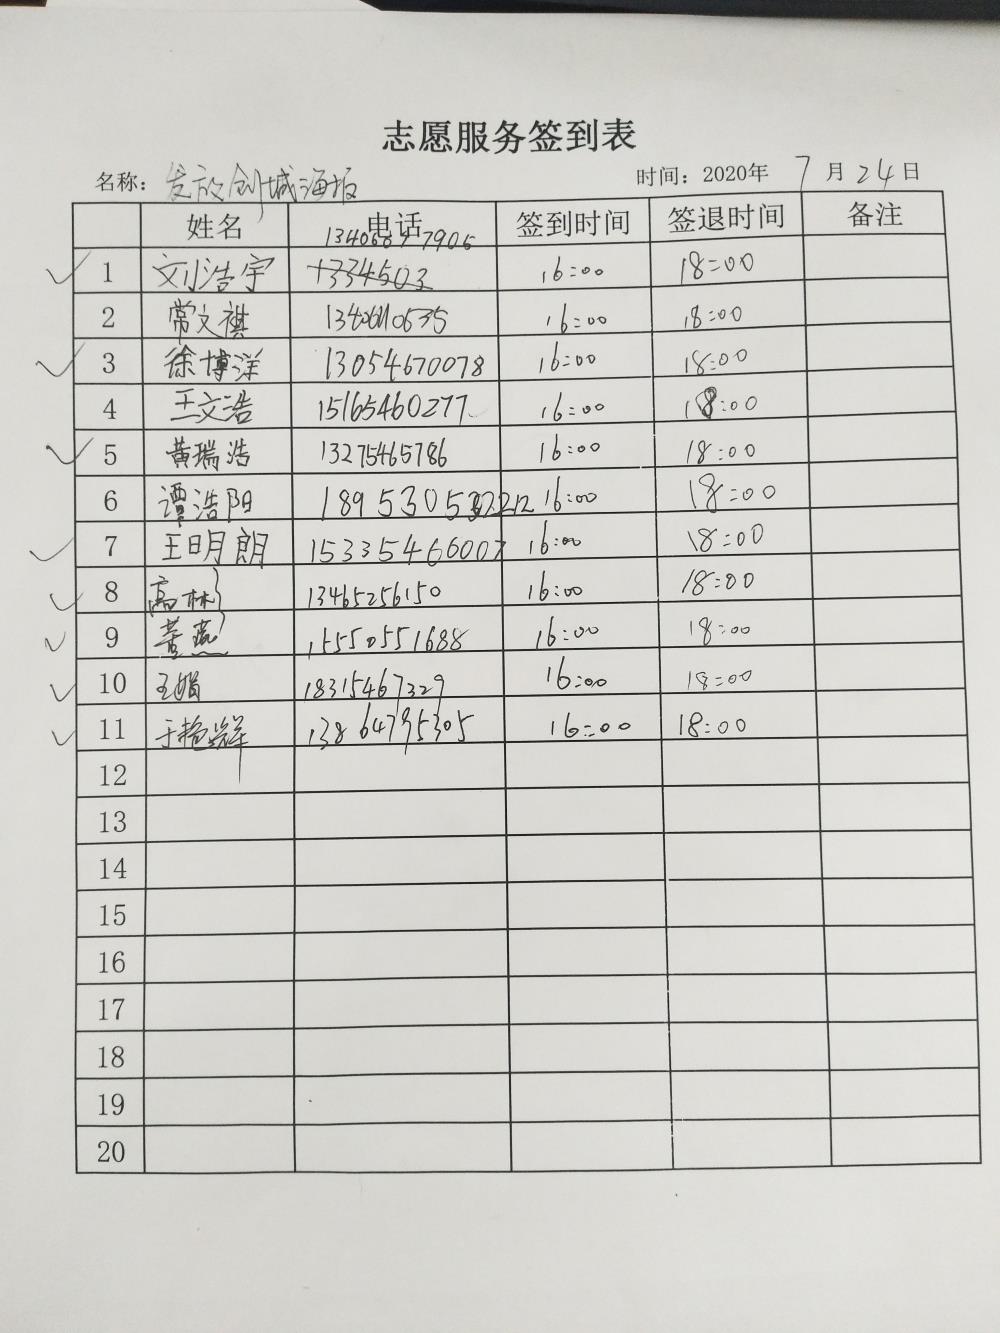 志愿服务签到表
名称：发放创城海报 时间：2020年 7 月 24 日
姓名 电话 签到时间 签退时间 备注
1 刘浩宇 16:00 18:00
2 常文祺 16:00 18:00
3 徐博洋 13054670078 16:00 18:00
4 王文浩 15165460277 16:00 18:00
5 黄瑞浩 13275465786 16:00 18:00
6 谭浩阳 16:00 18:00
7 王明朗 15335466007 16:00 18:00
8 高林 13465256150 16:00 18:00
9 15550551688 16:00 18:00
10 王娟 18315467329 16:00 18:00
11 13864795305 16:00 18:00
12
13
14
15
16
17
18
19
20